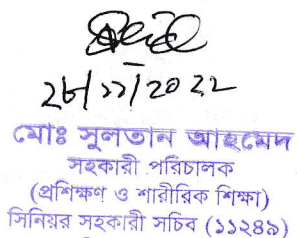 ২৮/১১/২০২২
মোঃ সুলতান আহমেদ
সহকারী পরিচালক
(প্রশিক্ষণ ও শারীরিক শিক্ষা)
সিনিয়র সহকারী সচিব (১১২৪৯)